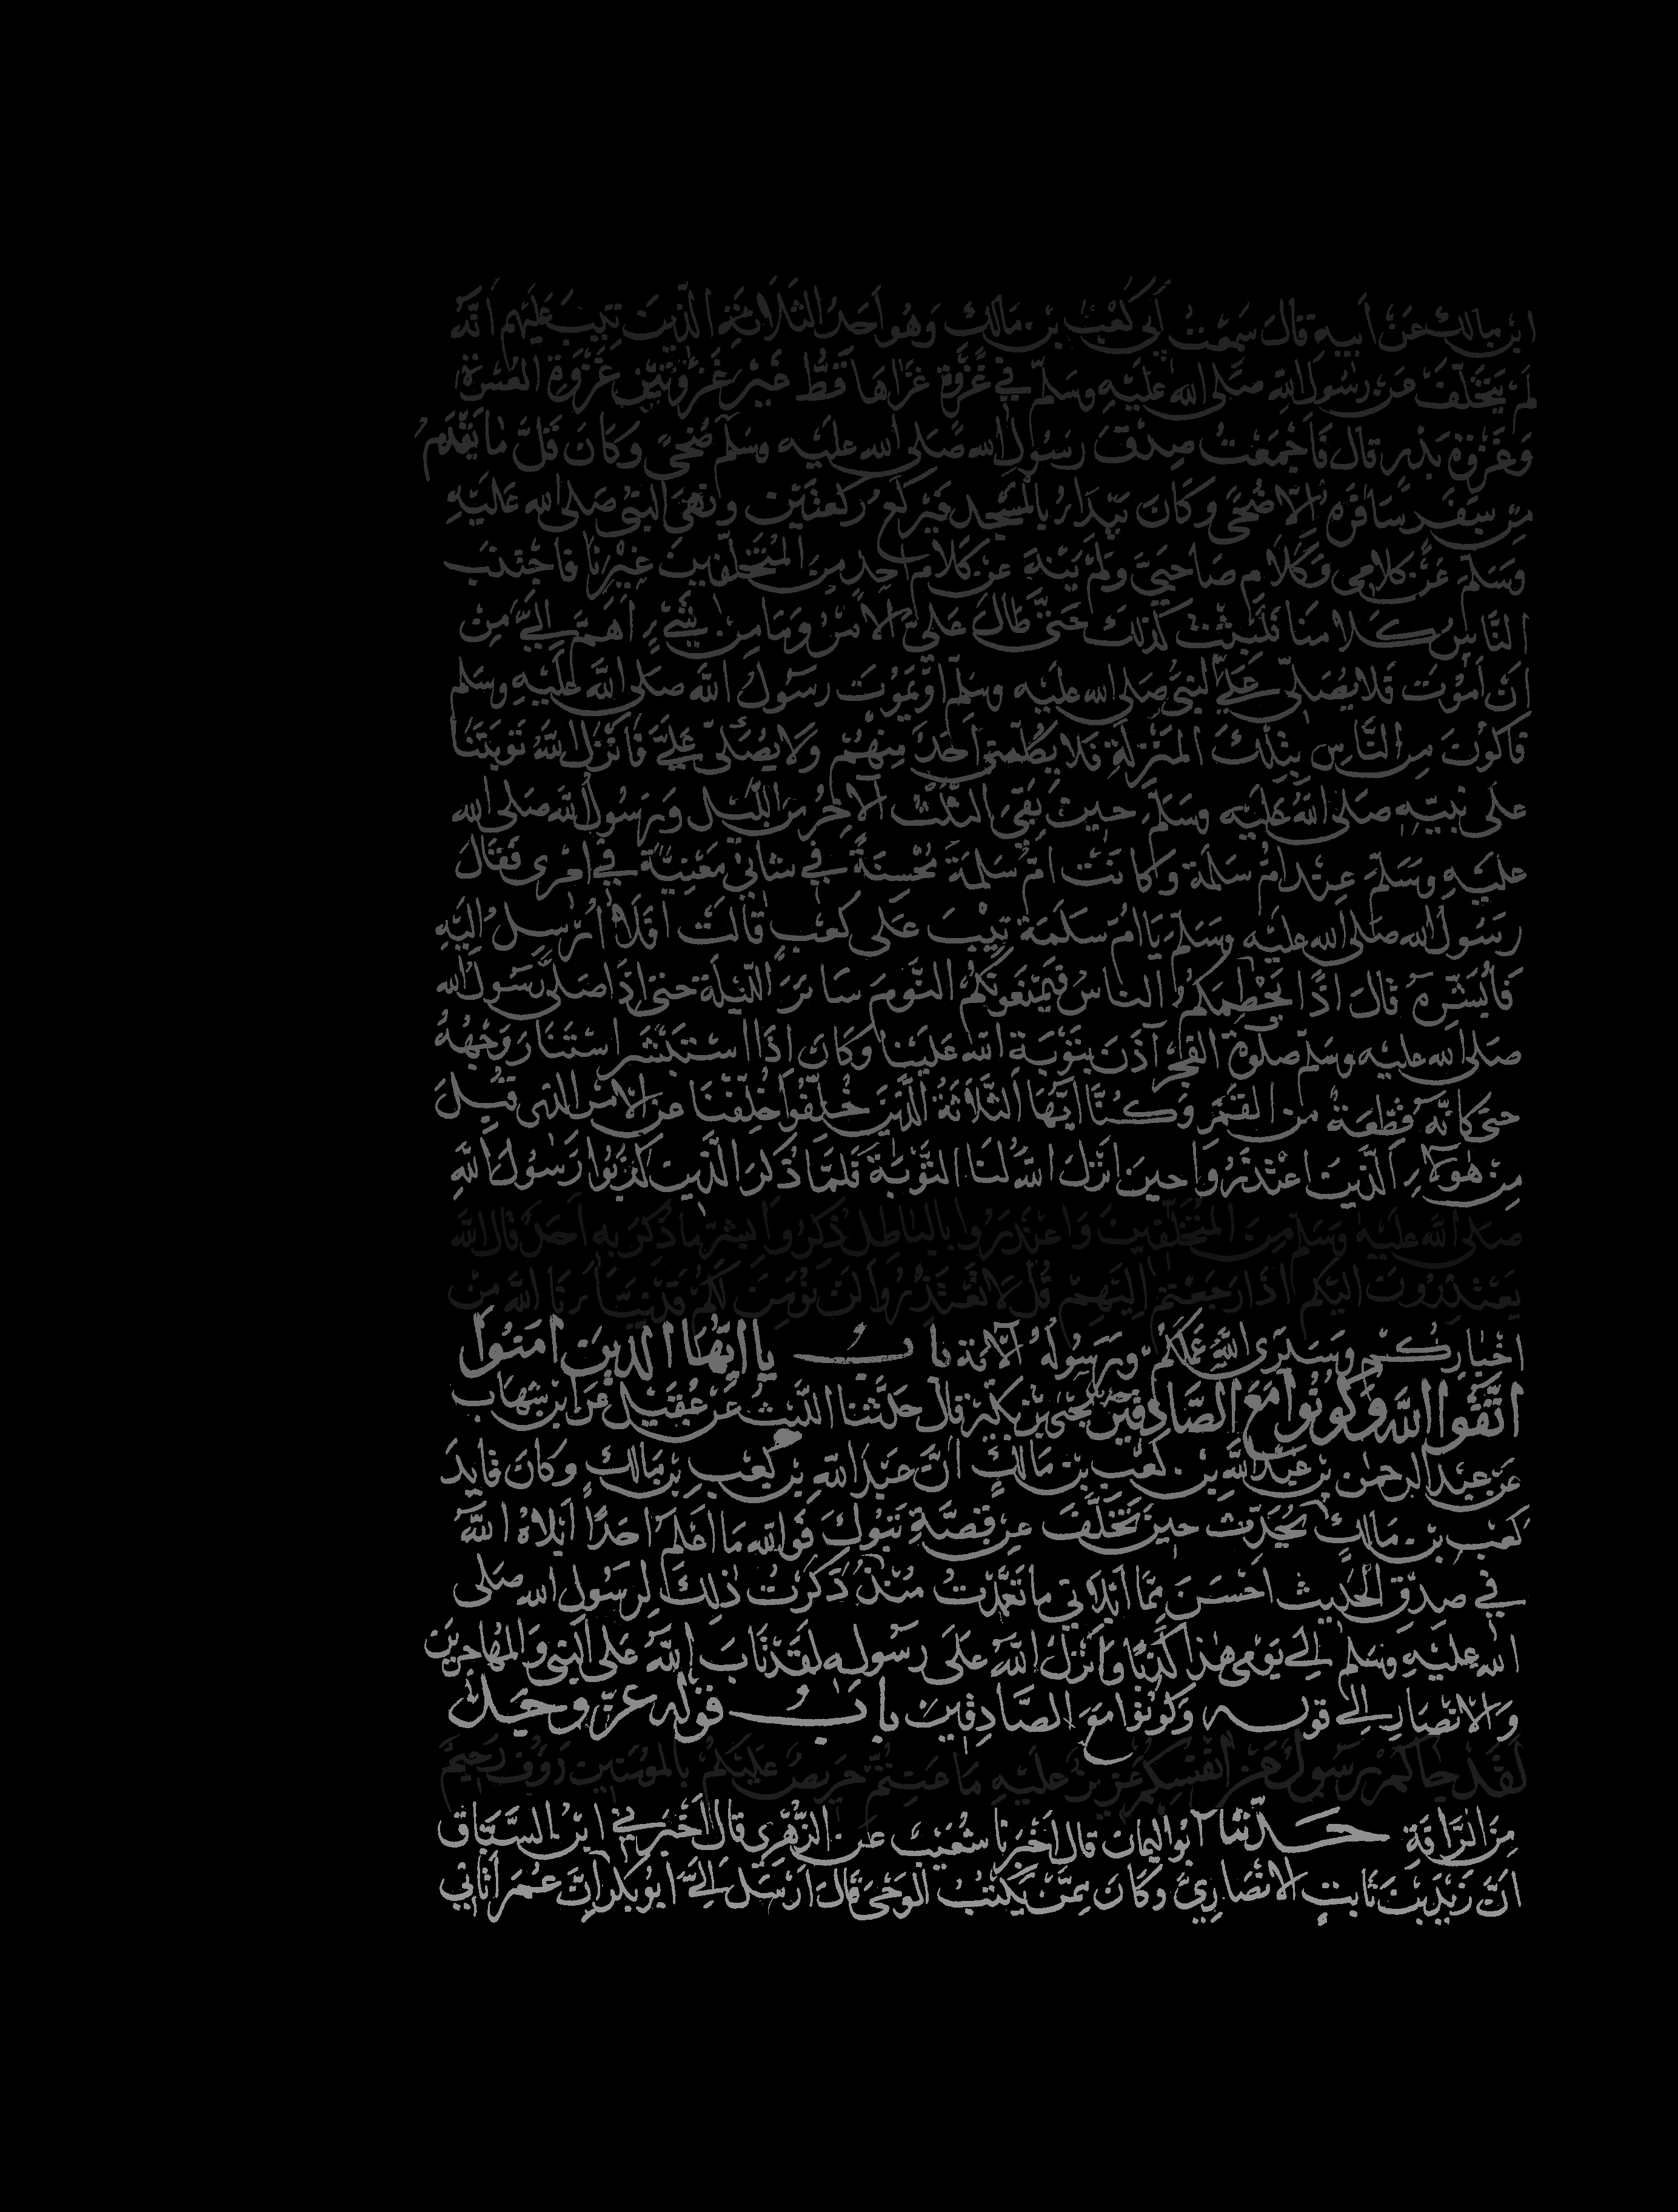 ابن مالك عن أبيه قال سمعت أبي كعب بن مالك وهو أحد الثلاثة الذين تيب عليهم أنه
لم يتخلف عن رسول الله صلى الله عليه وسلم في غزوة غزاها قط غير غزوتين غزوة العسرة
وغزوة بدر قال فأجمعت صدق رسول الله صلى الله عليه وسلم ضحى وكان قل ما يقدم
من سفر سافره إلا ضحى وكان يبدأ بالمسجد فيركع ركعتين ونهى النبي صلى الله عليه
وسلم عن كلامي وكلام صاحبي ولم ينه عن كلام أحد من المتخلفين غيرنا فاجتنب
الناس كلامنا فلبثت كذلك حتى طال علي الأمر وما من شيء أهم إلي من
أن أموت فلا يصلي علي النبي صلى الله عليه وسلم أو يموت رسول الله صلى الله عليه وسلم
فأكون من الناس بتلك المنزلة فلا يكلمني أحد منهم ولا يصلى علي فأنزل الله توبتنا
على نبيه صلى الله عليه وسلم حين بقي الثلث الآخر من الليل ورسول الله صلى الله
عليه وسلم عند أم سلمة وكانت أم سلمة محسنة في شاني معنية في أمري فقال
رسول الله صلى الله عليه وسلم يا أم سلمة تيب على كعب قالت أفلا أرسل إليه
فأبشره قال إذا يحطمكم الناس فيمنعونكم النوم سائر الليلة حتى إذا صلى رسول الله
صلى الله عليه وسلم صلوة الفجر آذن بتوبة الله علينا وكان إذا استبشر استنار وجهه
حتى كأنه قطعة من القمر وكنا أيها الثلاثة الذين خلفوا خلفنا عن الأمر الذي قبل
من هؤلاء الذين اعتذروا حين أنزل الله لنا التوبة فلما ذكر الذين كذبوا رسول الله
صلى الله عليه وسلم من المتخلفين واعتذروا بالباطل ذكروا بشر ما ذكر به أحد قال الله
يعتذرون إليكم إذا رجعتم إليهم قل لا تعتذروا لن نؤمن لكم قد نبأنا الله من
أخباركم وسيرى الله عملكم ورسوله الآية باب يا أيها الذين آمنوا
اتقوا الله وكونوا مع الصادقين يحيى بن بكير قال حدثنا الليث عن عقيل عن ابن شهاب
عن عبد الرحمن بن عبد الله بن كعب بن مالك أن عبد الله بن كعب بن مالك وكان قايد
كعب بن مالك يحدث حين تخلف عن قصة تبوك فوالله ما أعلم أحدا أبلاه الله
في صدق الحديث أحسن مما أبلاني ما تعمدت منذ ذكرت ذلك لرسول الله صلى
الله عليه وسلم إلى يومي هذا كذبا وأنزل الله على رسوله لقد تاب الله على النبي والمهاجرين
والأنصار إلى قوله وكونوا مع الصادقين باب قوله عز وجل
لقد جاكم رسول من أنفسكم عزيز عليه ما عنتم حريص عليكم بالمؤمنين رؤف رحيم
من الرأفة حدثنا أبو اليمان قال أخبرنا شعيب عن الزهري قال أخبرني ابن السباق
أن زيد بن ثابت الأنصاري وكان ممن يكتب الوحي قال أرسل إلي أبو بكر إن عمر أتاني